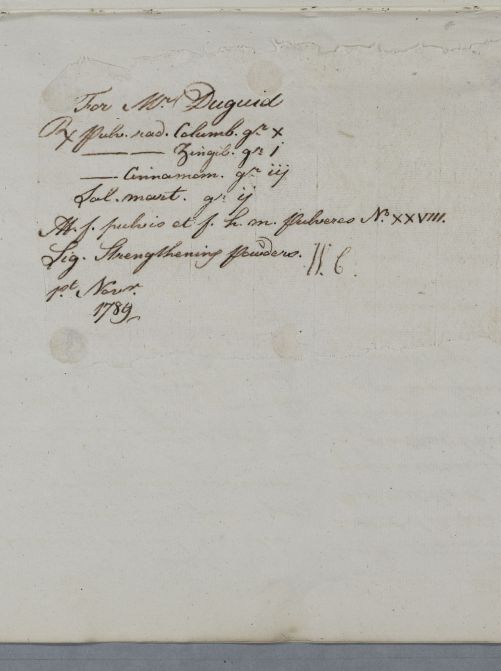 For Mrs Duguid
Rx Pulv. rad. Columb. gr. x
—— —— Zingib. gr. i
—— Cinnamom. gr. iij
Sal. mart. gr. ij
M. f. pulvis et f. h. m. pulveres No. XXVIII.
Sig. Strengthening Powders. W. C.
1st Novr.
1789